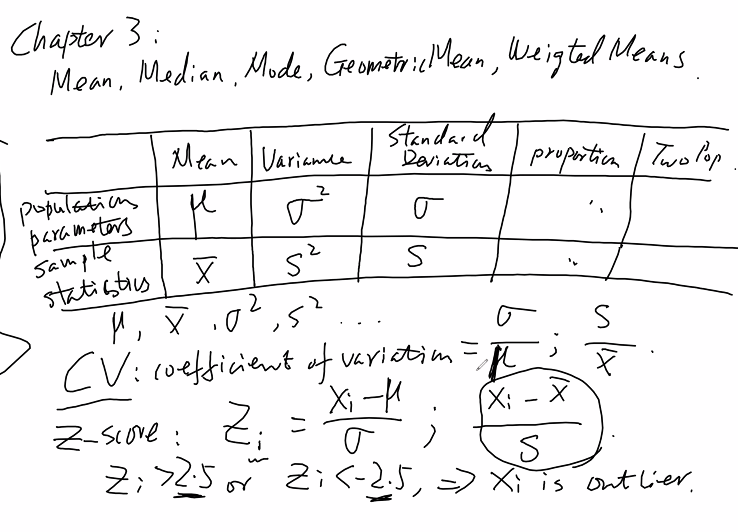 Chapter 3:
Mean, Median, Mode, Geometric Mean, Weigted Means.
Mean | Variance | Standard Deviation | proportion | Two Pop.
population parameters | μ | σ² | σ | ..
sample statistics | x̄ | S² | S | ..
μ, x̄, σ², s² ...
CV: coefficient of variation = σ/μ ; S/x̄.
Z-score: Zᵢ = (xᵢ-μ)/σ ; (xᵢ-x̄)/S.
Zᵢ>2.5 or Zᵢ<-2.5, => xᵢ is outlier.